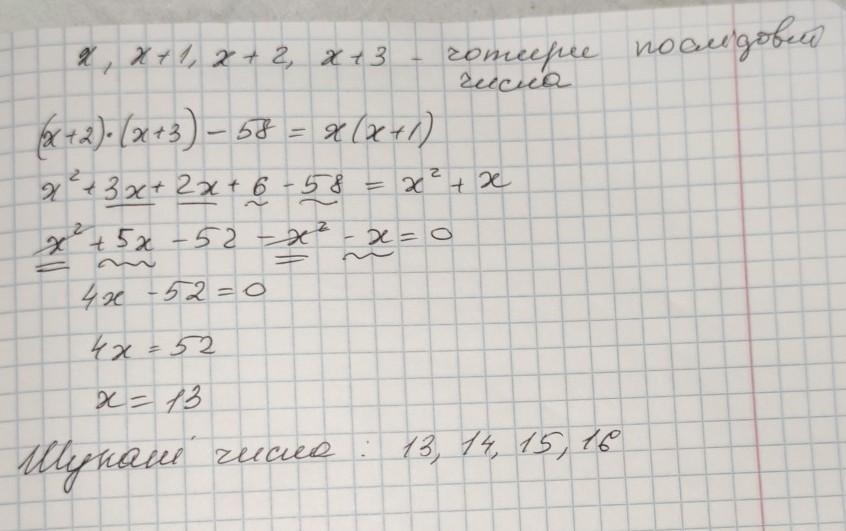 x, x+1, x+2, x+3 - чотири послідовні
числа
(x+2)·(x+3) - 58 = x(x+1)
x² + 3x + 2x + 6 - 58 = x² + x
x² + 5x - 52 - x² - x = 0
4x - 52 = 0
4x = 52
x = 13
Шукані числа : 13, 14, 15, 16